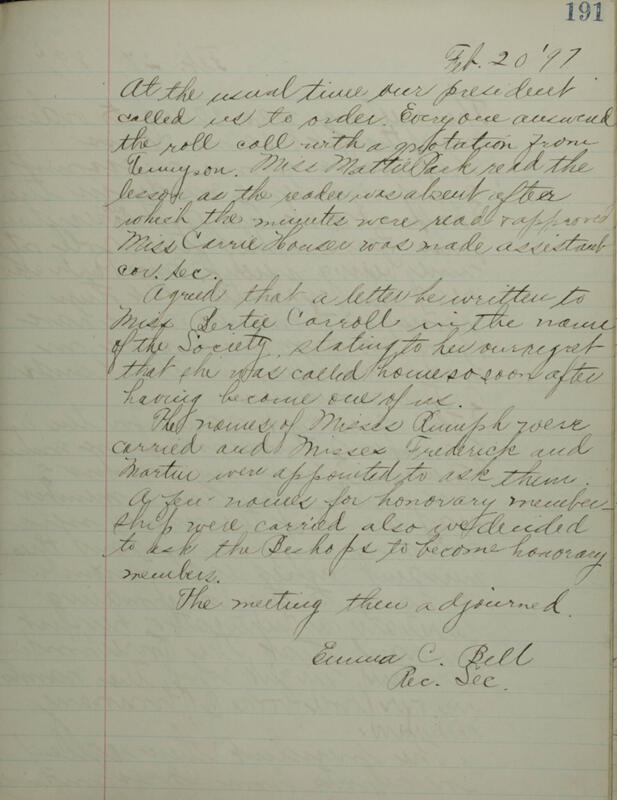 191
Feb. 20 '97
At the usual time our president
called us to order. Everyone answered
the roll call with a quotation from
Tennyson. Miss Mattie Park read the
lesson as the reader was absent after
which the minutes were read & approved
Miss Carrie Houser was made assistant
cor. sec.
Agreed that a letter be written to
Miss Bertee Carroll in the name
of the Society, stating to her our regret
that she was called home so soon after
having become one of us.
The names of Misses Rumph were
carried and Misses Frederick and
Martin were appointed to ask them.
A few names for honorary member-
ship were carried also we decided
to ask the Bishops to become honorary
members.
The meeting then adjourned.
Emma C. Bell
Rec. Sec.